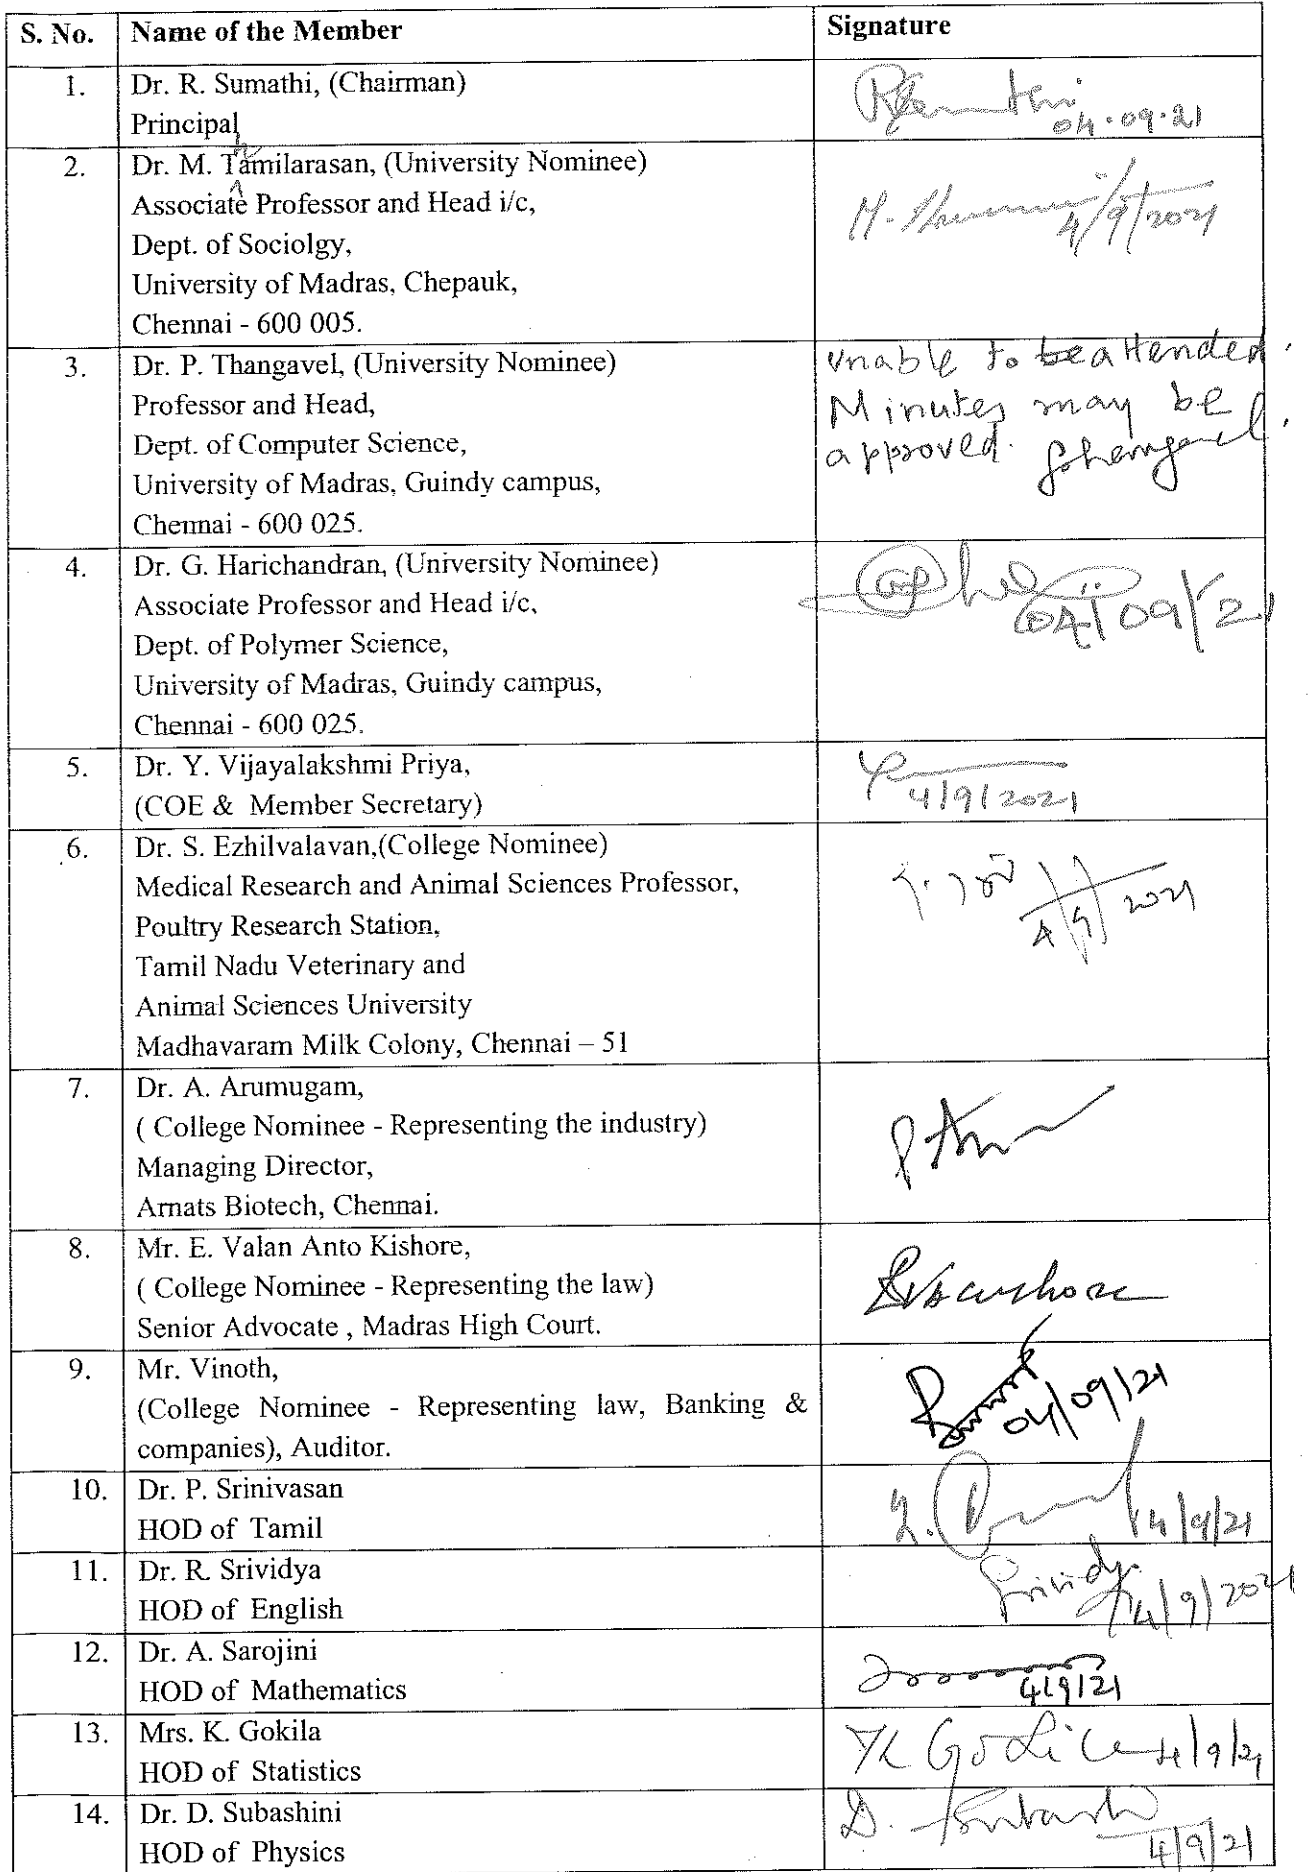 S. No. Name of the Member Signature
1. Dr. R. Sumathi, (Chairman)
Principal
04.09.21
2. Dr. M. Thamilarasan, (University Nominee)
Associate Professor and Head i/c,
Dept. of Sociolgy,
University of Madras, Chepauk,
Chennai - 600 005.
4/9/2021
3. Dr. P. Thangavel, (University Nominee)
Professor and Head,
Dept. of Computer Science,
University of Madras, Guindy campus,
Chennai - 600 025.
unable to be attended.
Minutes may be
approved.
4. Dr. G. Harichandran, (University Nominee)
Associate Professor and Head i/c,
Dept. of Polymer Science,
University of Madras, Guindy campus,
Chennai - 600 025.
04/09/21
5. Dr. Y. Vijayalakshmi Priya,
(COE & Member Secretary)
4/9/2021
6. Dr. S. Ezhilvalavan,(College Nominee)
Medical Research and Animal Sciences Professor,
Poultry Research Station,
Tamil Nadu Veterinary and
Animal Sciences University
Madhavaram Milk Colony, Chennai – 51
4/9/2021
7. Dr. A. Arumugam,
( College Nominee - Representing the industry)
Managing Director,
Arnats Biotech, Chennai.
8. Mr. E. Valan Anto Kishore,
( College Nominee - Representing the law)
Senior Advocate , Madras High Court.
9. Mr. Vinoth,
(College Nominee - Representing law, Banking &
companies), Auditor.
04/09/21
10. Dr. P. Srinivasan
HOD of Tamil
4/9/21
11. Dr. R. Srividya
HOD of English
Srividya
4/9/2021
12. Dr. A. Sarojini
HOD of Mathematics
4/9/21
13. Mrs. K. Gokila
HOD of Statistics
4/9/21
14. Dr. D. Subashini
HOD of Physics
4/9/21